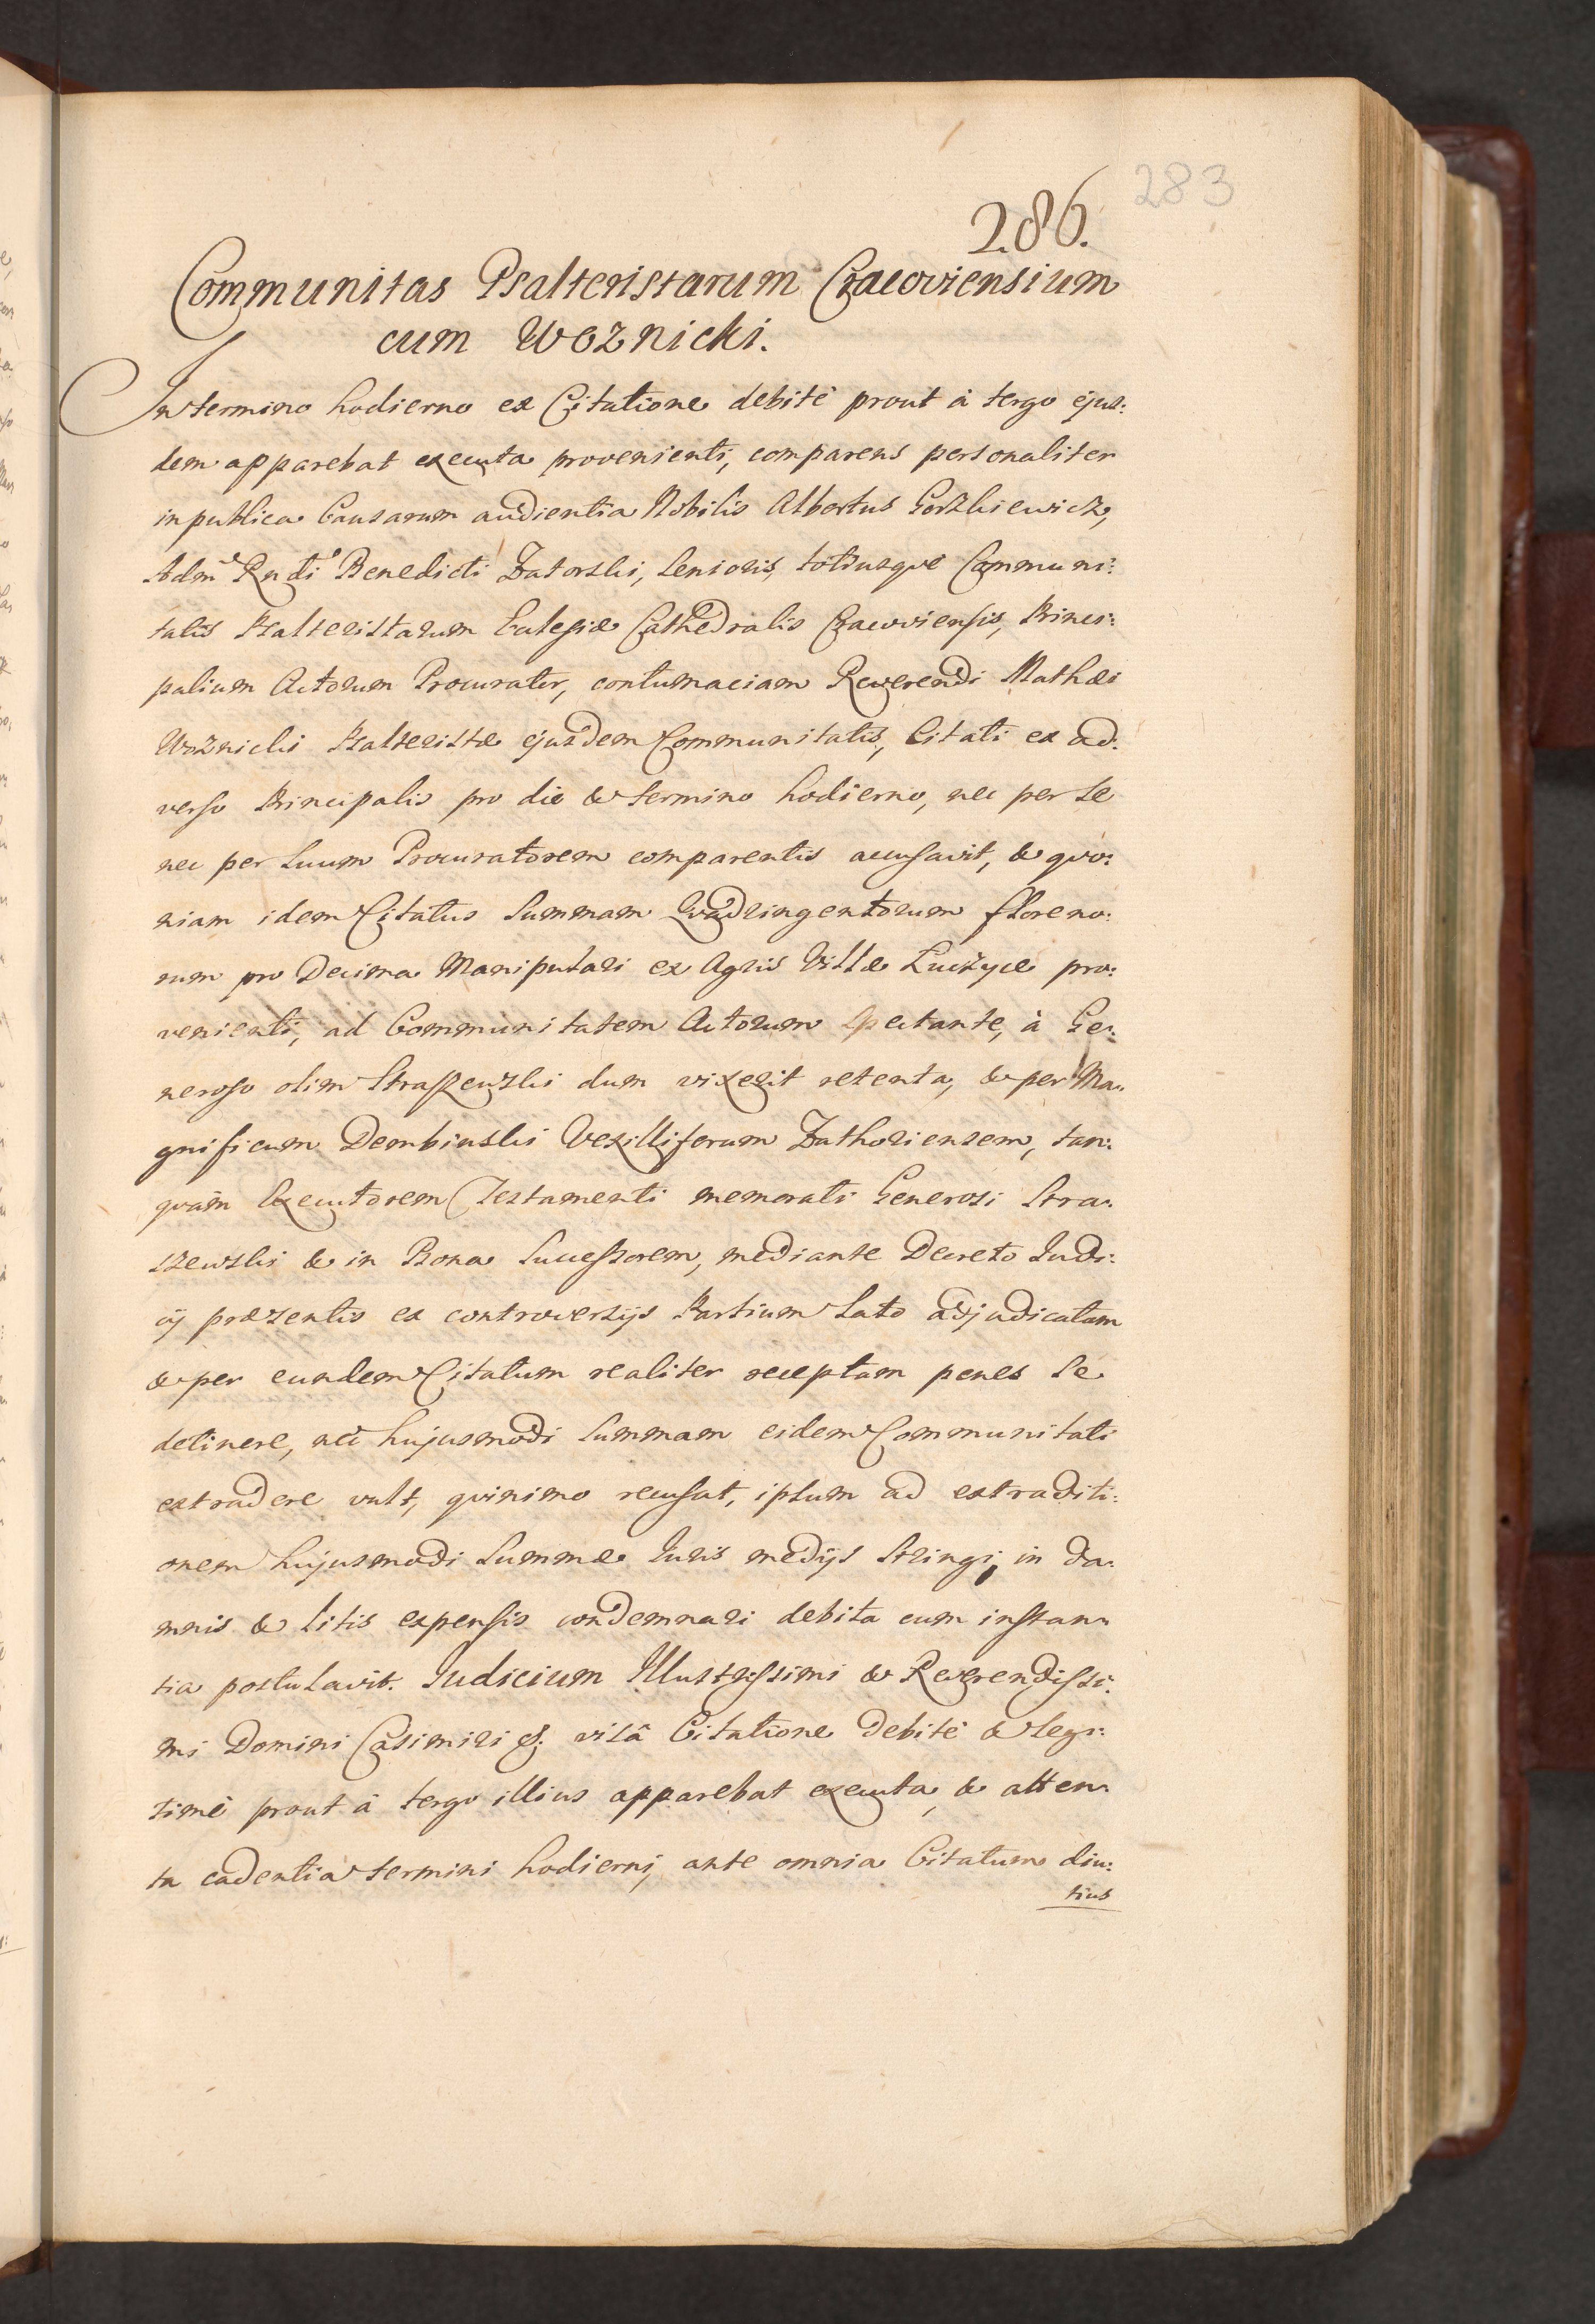 283
286.
Communitas Psalteristarum Cracoviensium
cum Woznicki.
In termino hodierno ex Citatione debitè prout à tergo ejus:
dem apparebat executa provenienti, comparens personaliter
in publica Causarum audientia Nobilis Albertus Gorzkiewicz,
Adm Rndi Benedicti Zatorski, Senioris, totiusque Communi:
tatis Psalteristarum Ecclesiæ Cathedralis Cracoviensis, Princi:
palium Actorum Procurator, contumaciam Reverendi Mathæi
Woznicki Psalteristæ ejusdem Communitatis, Citati ex ad:
verso Principalis pro die & termino hodierno, nec per se
nec per suum Procuratorem comparentis accusavit, & quo:
niam idem Citatus Summam Quadringentorum floreno:
rum pro Decima Manipulari ex Agris Villæ Luczyce pro:
venienti, ad Communitatem Actorum spectante, à Ge:
neroso olim Straszewski dum vixerit retenta, & per Ma:
gnificum Dembinski Vexilliferum Zathoriensem, tan:
quàm Executorem Testamenti memorati Generosi Stra:
szewski & in Bona Successorem, mediante Decreto Judi:
cij præsentis ex controversijs Partium lato adjudicatam
& per eundem Citatum realiter receptam penes se
detinere, nec hujusmodi Summam eidem Communitati
extradere vult, quinimo recusat, ipsum ad extraditi:
onem hujusmodi Summæ Juris medijs stringi, in da:
mnis & litis expensis condemnari debita cum instan:
tia postulavit. Judicium Illustrissimi & Reverendissi:
mi Domini Casimiri &: visâ Citatione debitè & legi:
timè prout à tergo illius apparebat executa, & atten:
ta cadentia termini hodierni, ante omnia Citatum diu:
tius